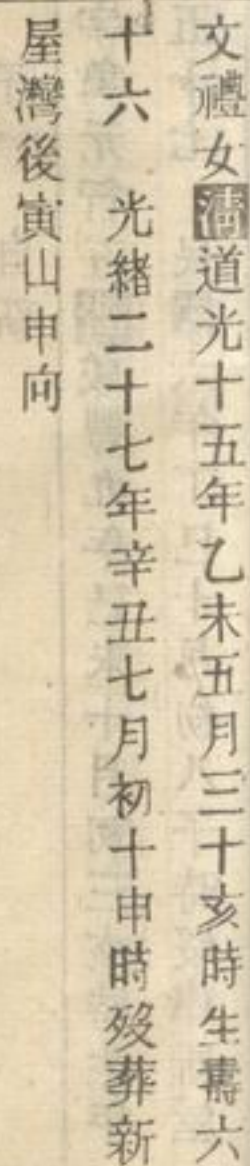 文禮女清道光十五年乙未五月三十亥時生壽六
十六　光緒二十七年辛丑七月初十申時歿葬新
屋灣後寅山申向